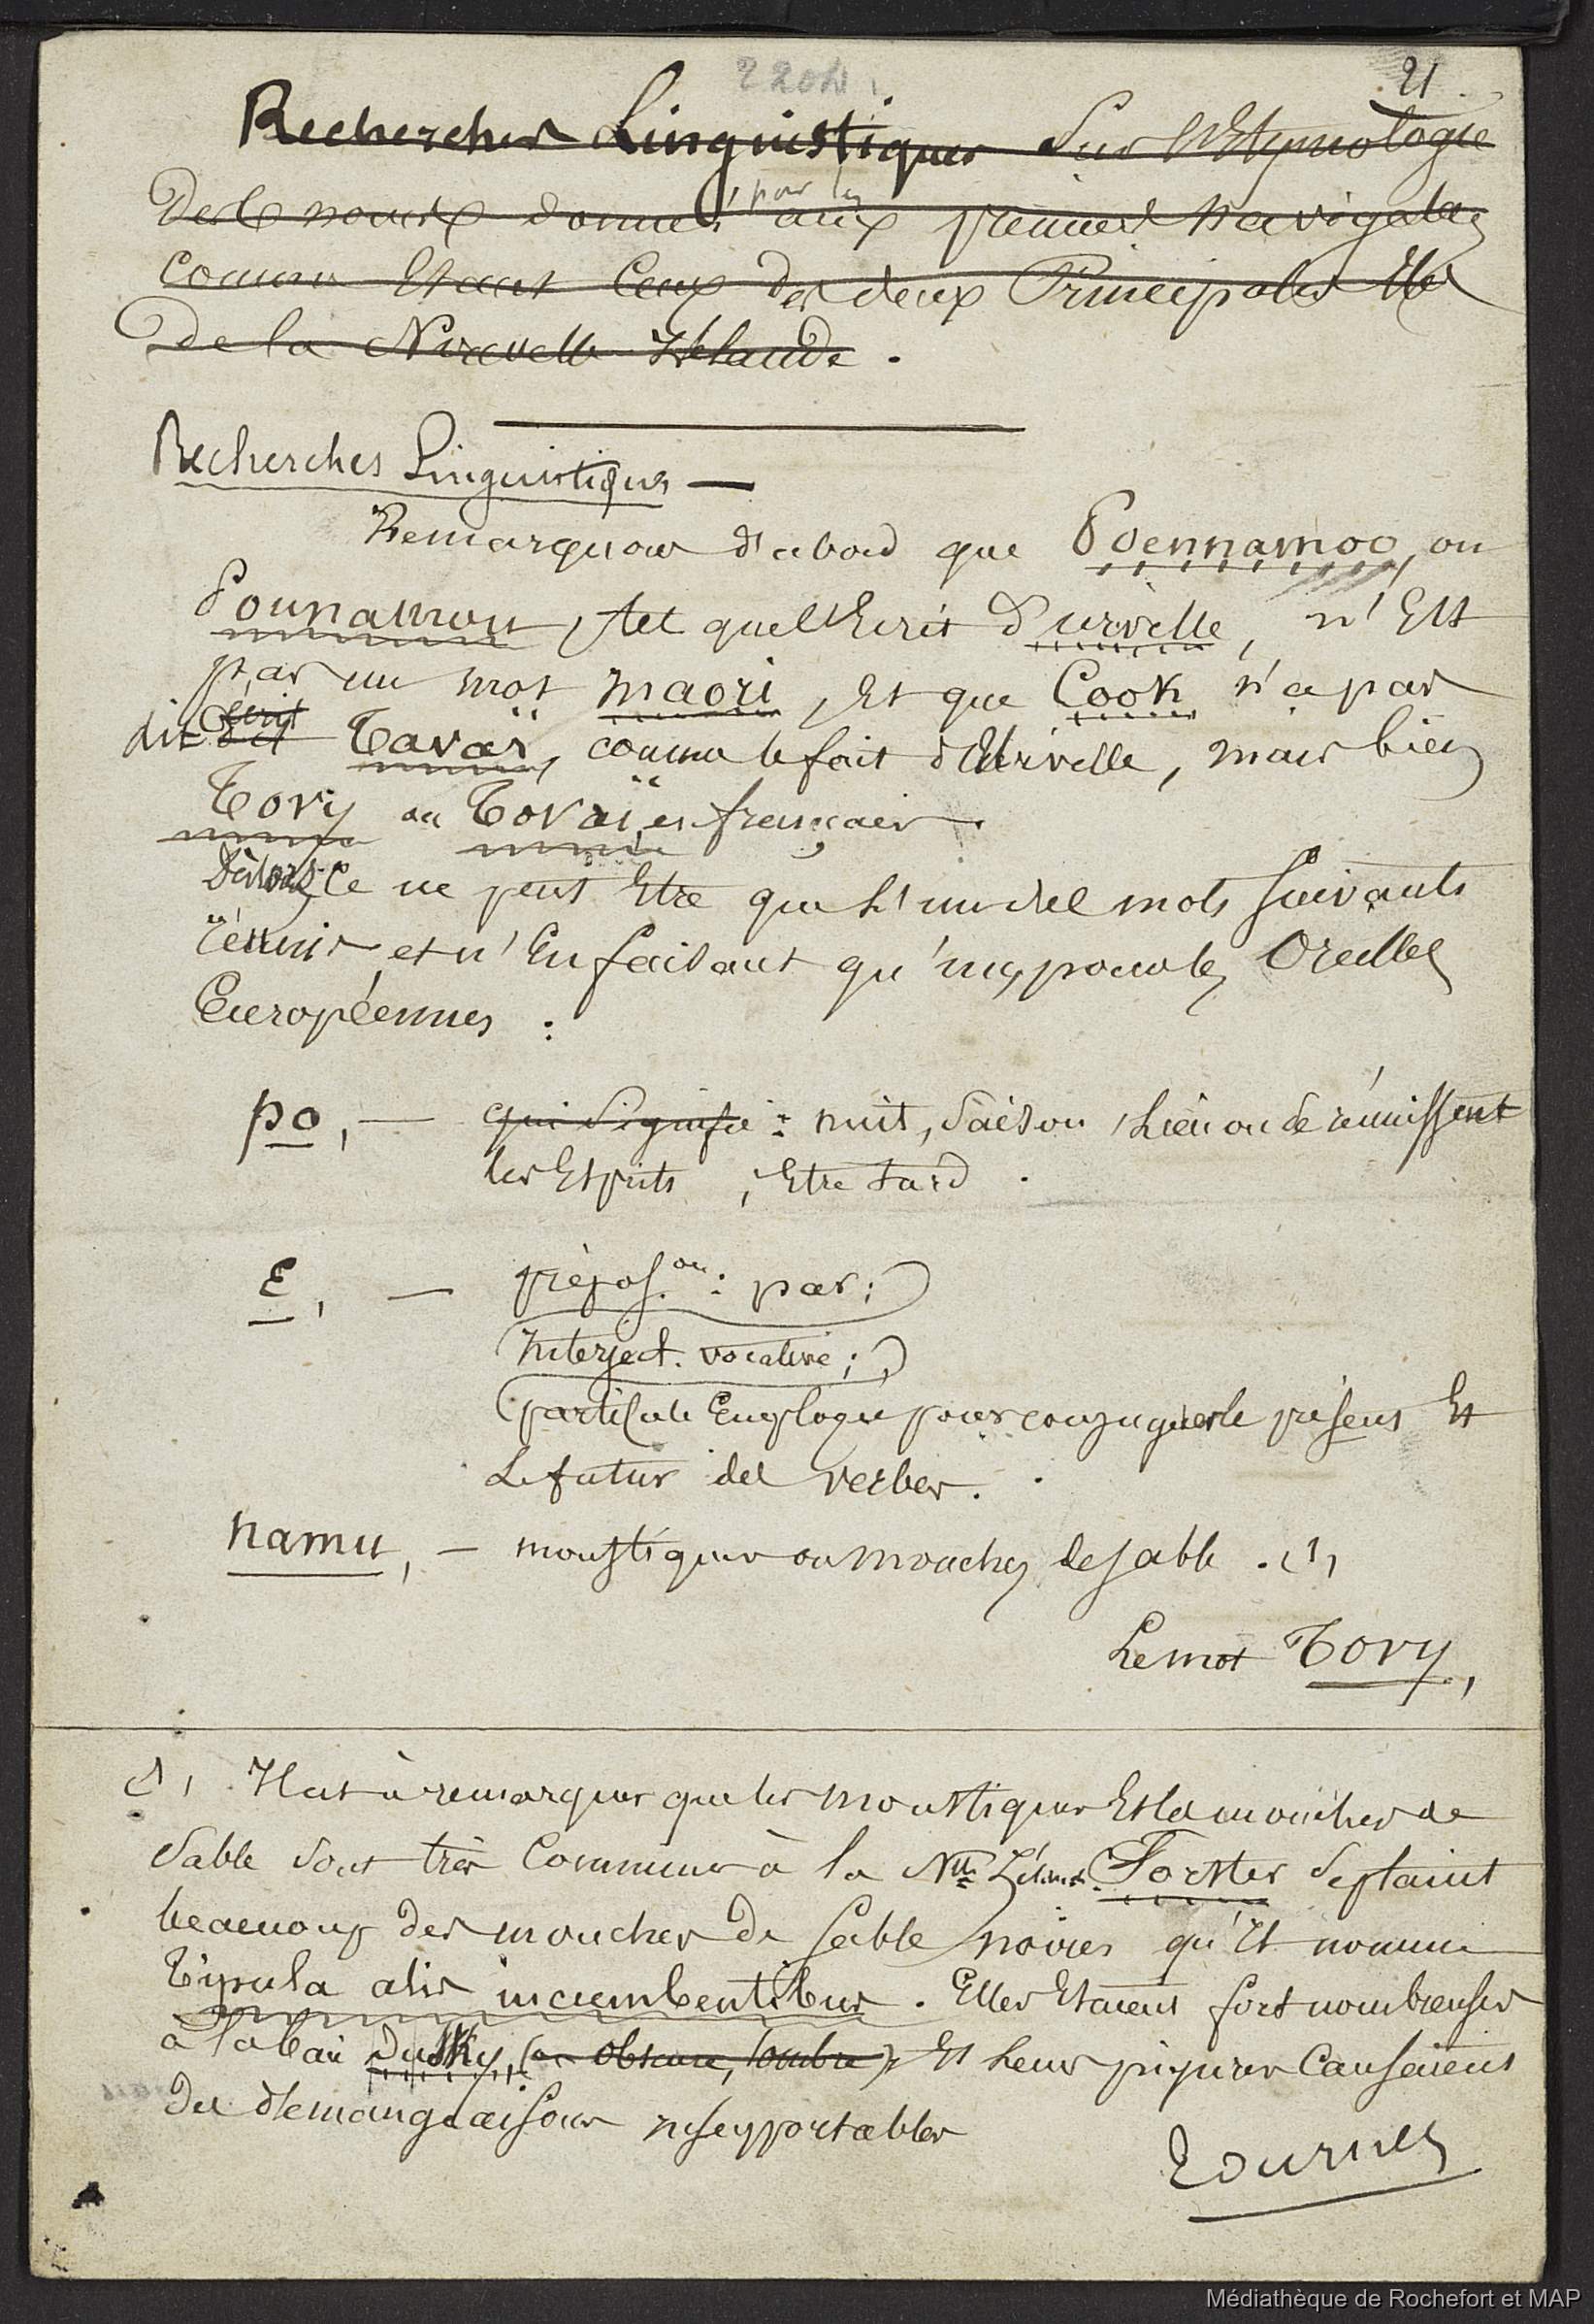 2204.
21
Recherches Linguistiques sur l'Etymologie
des noms donnés par les aux premiers navigateurs
comme Etant Ceux des deux Principales Iles
de la Nouvelle Zélande.
Recherches Linguistiques —
Remarquons d'abord que Poennamoo, ou
Pounamou, tel que l'Ecrit d'Urville, n'Est
pas un mot maori, Et que Cook n'a pas
dit écrit Tavaï, comme le fait d'Urville, mais bien
Tovy ou Tovaï, en français.
Dès lors, Ce ne peut Etre que l'un des mots suivants
réunis, et n'En faisant qu'un, pour les Oreilles
Européennes :
po, — qui signifie : nuit, saison, Lieu où se réunissent
les Esprits ; Etre tard.
E, — prépos.on : par ;
Interject. vocative ;
particule Employée pour conjuguer le présent Et
Le futur des verbes.
namu, — moustiques ou mouches de sable. (1)
Le mot Tovy,
(1) Il est à remarquer que les moustiques Et les mouches de
Sable sont très Communes à la Nlle Zélande. Forster se plaint
beaucoup des mouches de sable noires qu'il nomme
Tipula alis incumbentibus. Elles Etaient fort nombreuses
à la baie Dusky, (ou obscure, sombre) Et leurs piqures Causaient
des démangeaisons insupportables
Tournez
Médiathèque de Rochefort et MAP